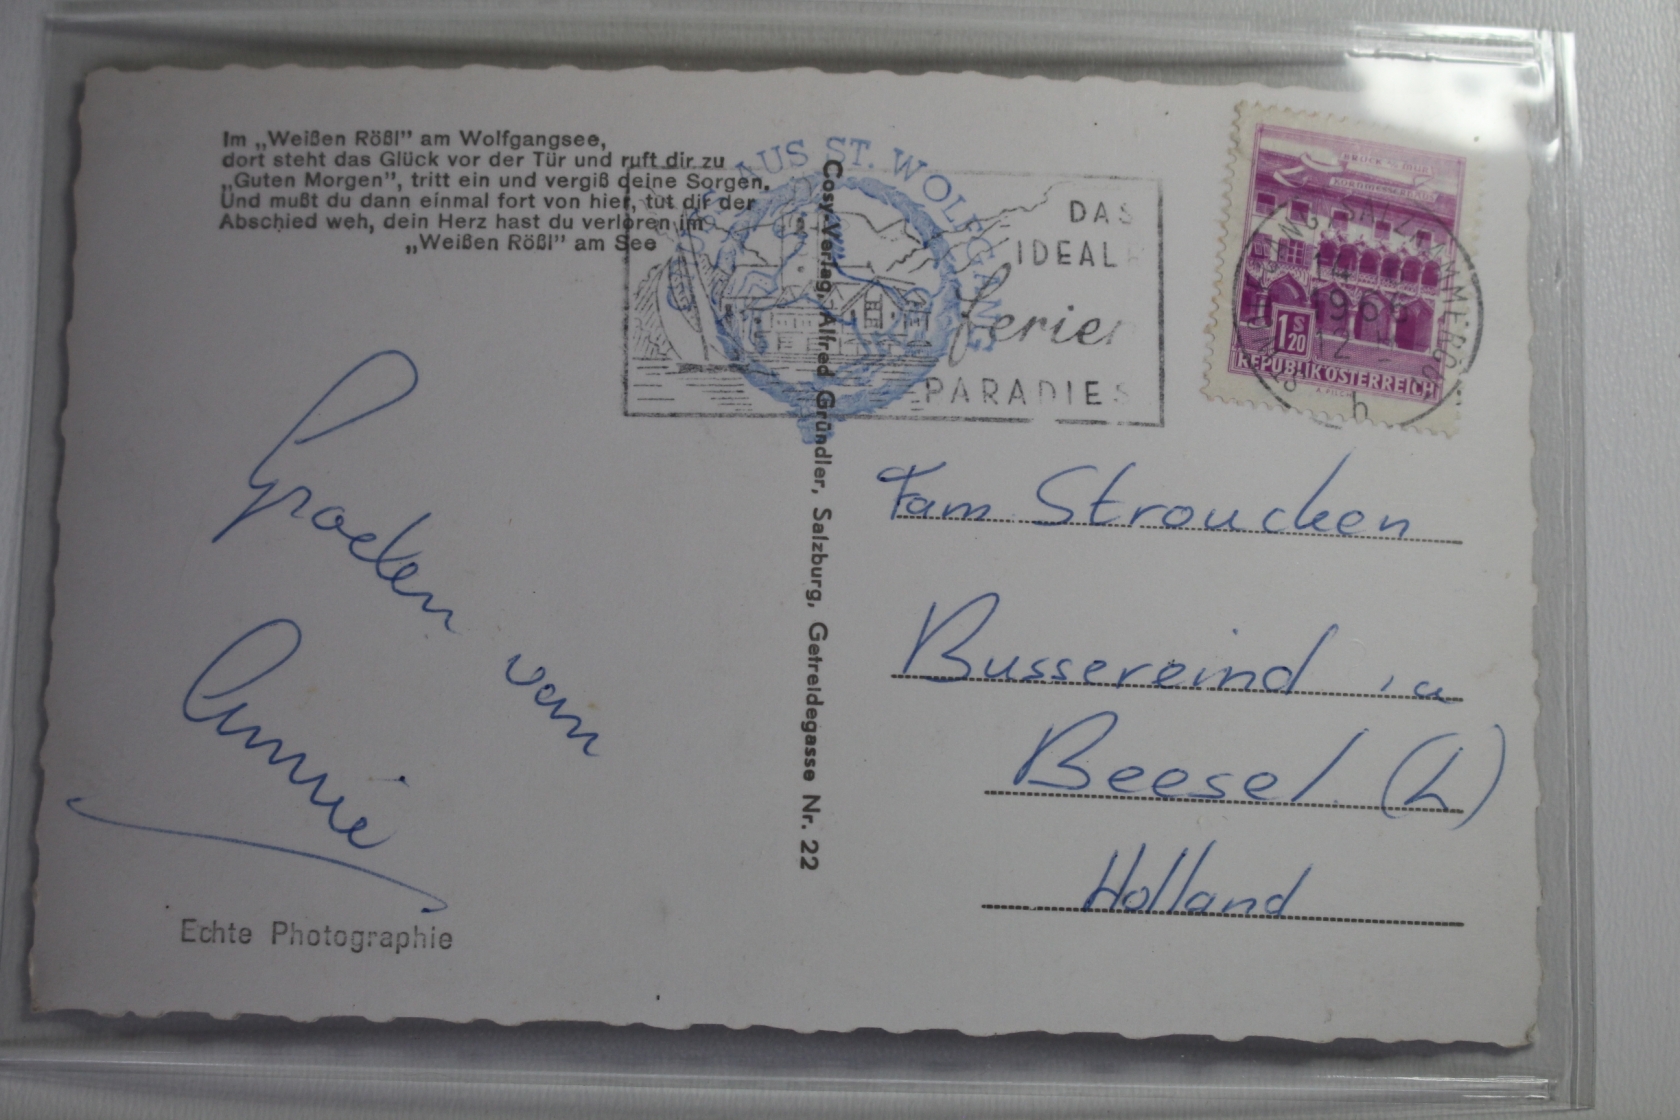 Im „Weißen Rößl” am Wolfgangsee,
dort steht das Glück vor der Tür und ruft dir zu
„Guten Morgen”, tritt ein und vergiß deine Sorgen,
Und mußt du dann einmal fort von hier, tut dir der
Abschied weh, dein Herz hast du verloren im
„Weißen Rößl” am See
AUS ST. WOLFGANG
DAS
IDEALE
Ferien
PARADIES
1 S 20
REPUBLIK ÖSTERREICH
Cosy-Verlag, Alfred Gründler, Salzburg, Getreidegasse Nr. 22
Groeten van
Annie
Echte Photographie
Fam Stroucken
Bussereind
Beesel. (L)
Holland